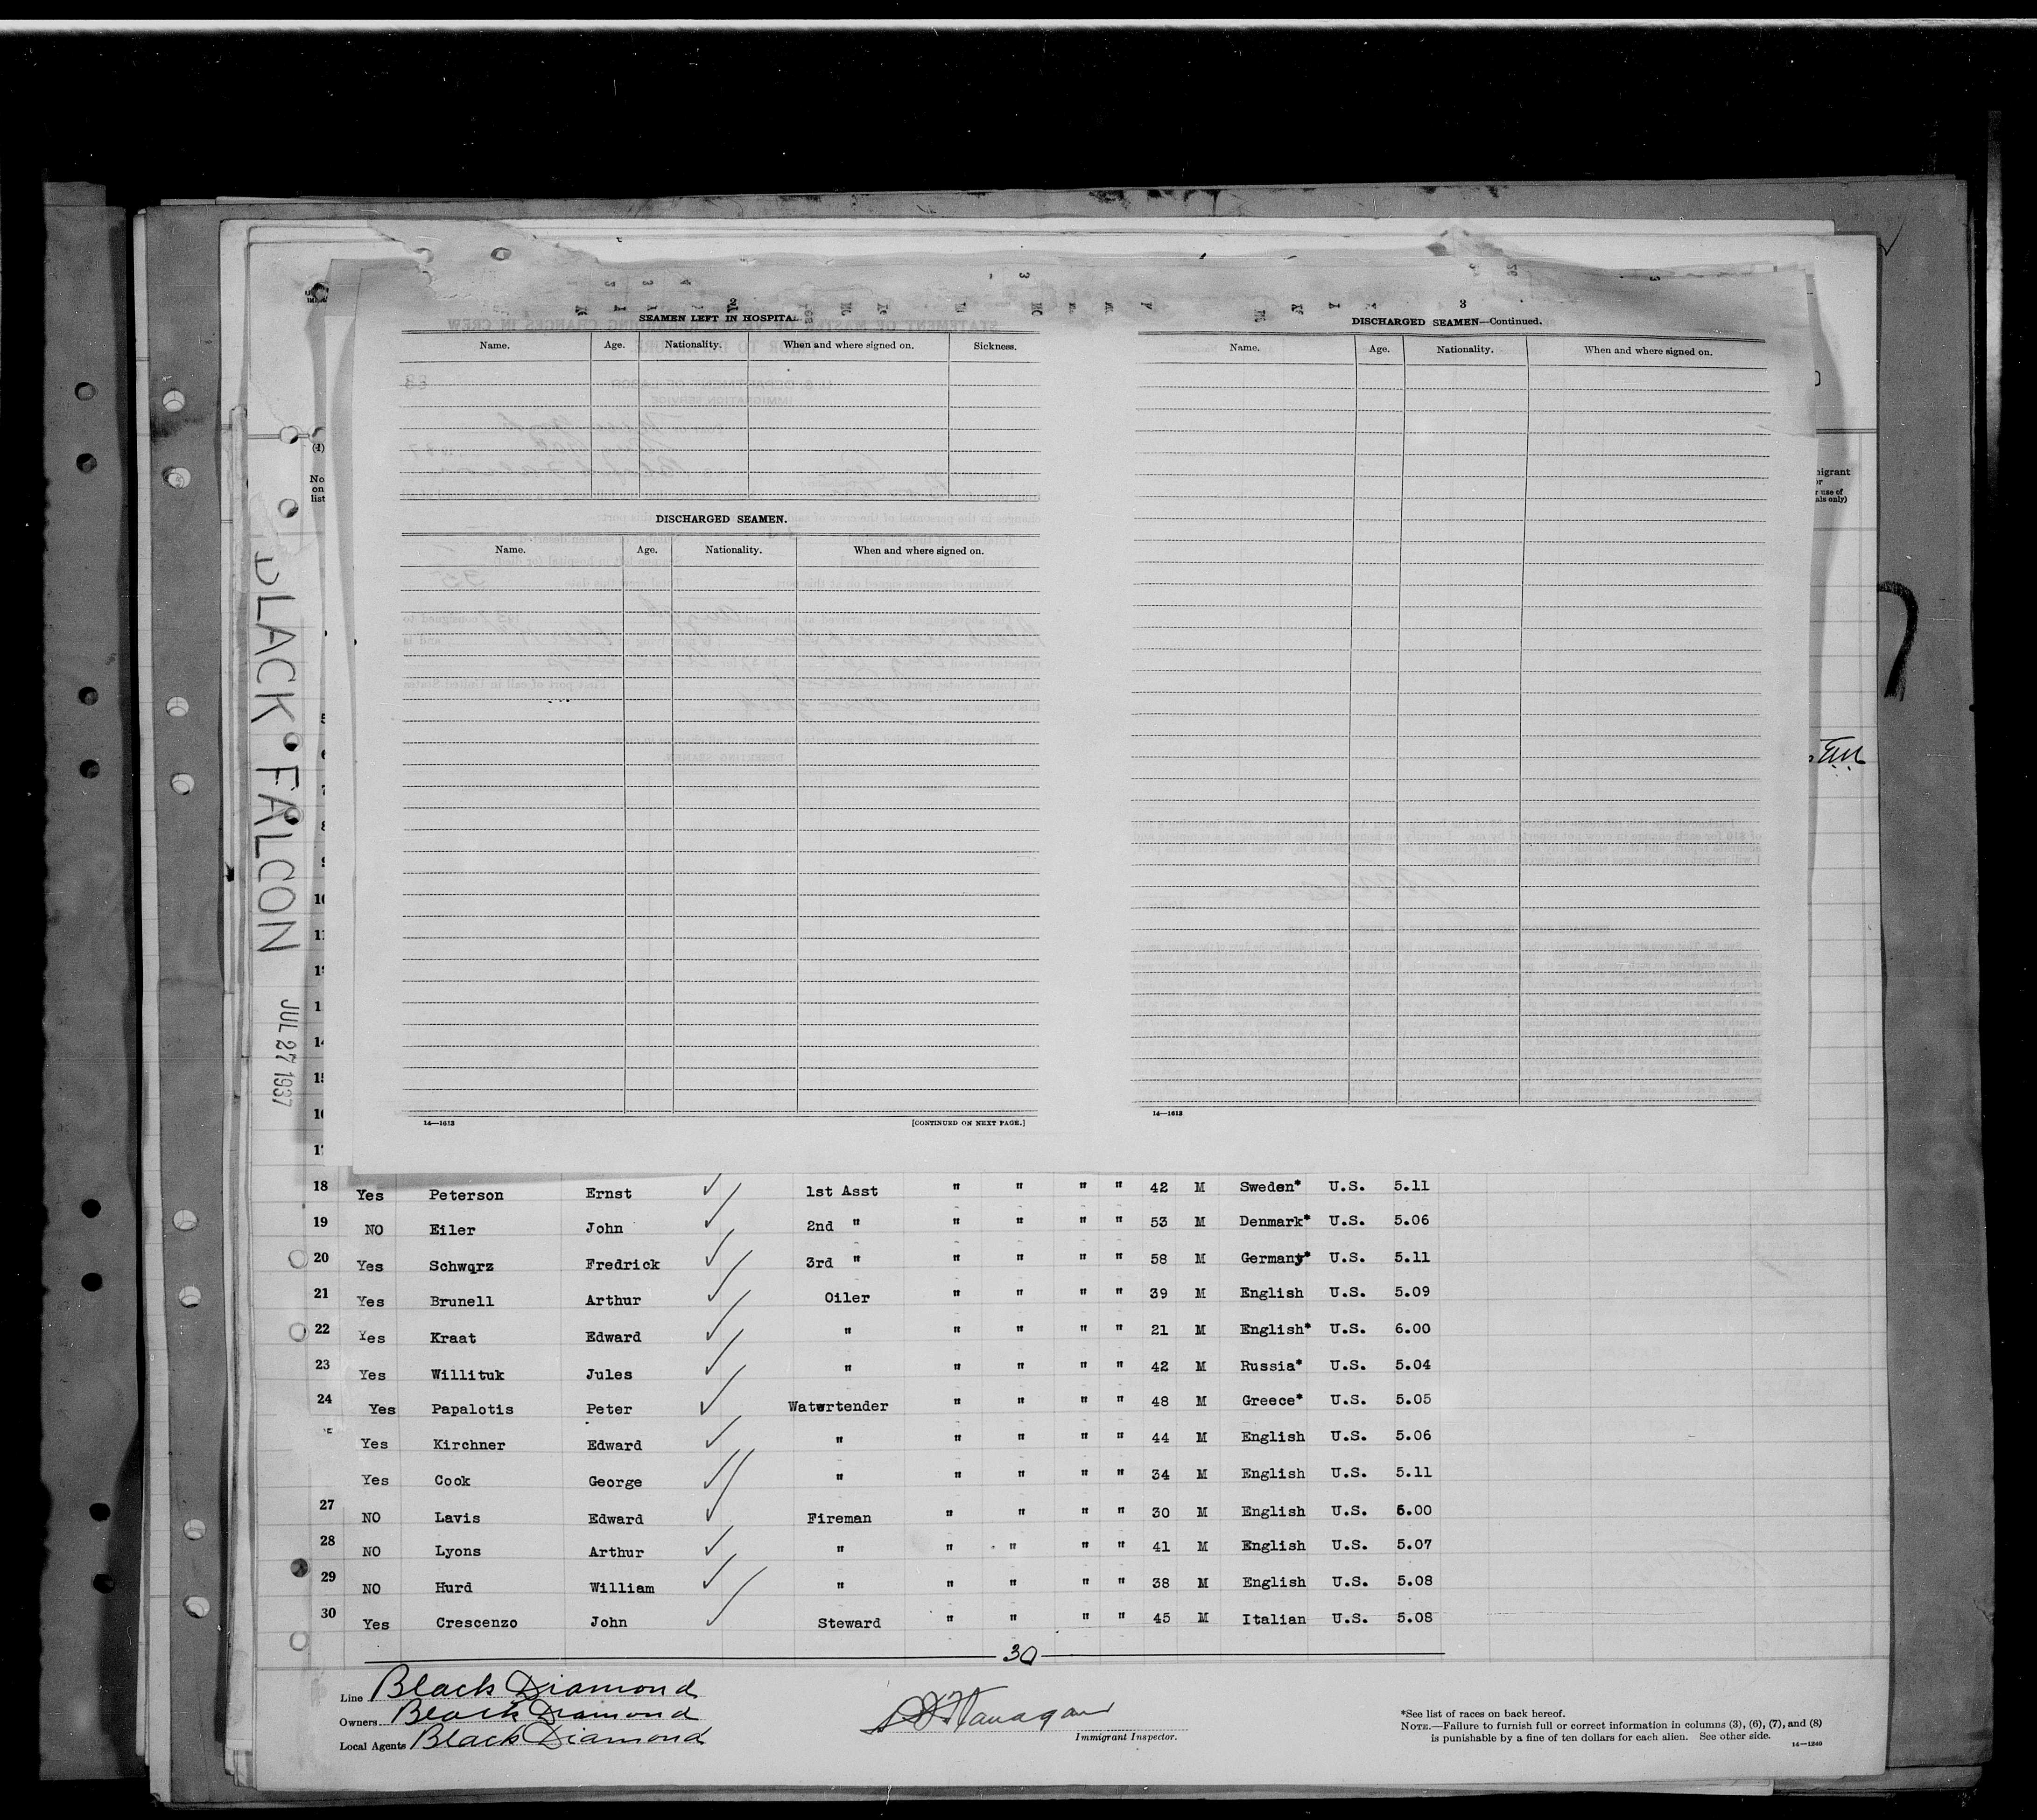 BLACK FALCON
JUL 27 1937
2
SEAMEN LEFT IN HOSPITAL
Name. Age. Nationality. When and where signed on. Sickness.
DISCHARGED SEAMEN.
Name. Age. Nationality. When and where signed on.
14—1613 [CONTINUED ON NEXT PAGE.]
3
DISCHARGED SEAMEN—Continued.
Name. Age. Nationality. When and where signed on.
14—1613
(4)
No
on
list
18 Yes Peterson Ernst 1st Asst " " " " 42 M Sweden* U.S. 5.11
19 NO Eiler John 2nd " " " " " 53 M Denmark* U.S. 5.06
20 Yes Schwqrz Fredrick 3rd " " " " " 58 M Germany* U.S. 5.11
21 Yes Brunell Arthur Oiler " " " " 39 M English U.S. 5.09
22 Yes Kraat Edward " " " " " 21 M English* U.S. 6.00
23 Yes Willituk Jules " " " " " 42 M Russia* U.S. 5.04
24 Yes Papalotis Peter Watwrtender " " " " 48 M Greece* U.S. 5.05
Yes Kirchner Edward " " " " " 44 M English U.S. 5.06
Yes Cook George " " " " " 34 M English U.S. 5.11
27 NO Lavis Edward Fireman " " " " 30 M English U.S. 6.00
28 NO Lyons Arthur " " " " " 41 M English U.S. 5.07
29 NO Hurd William " " " " " 38 M English U.S. 5.08
30 Yes Crescenzo John Steward " " " " 45 M Italian U.S. 5.08
30
Line Black Diamond
Owners Black Diamond
Local Agents Black Diamond
Flanagan
Immigrant Inspector.
*See list of races on back hereof.
NOTE.—Failure to furnish full or correct information in columns (3), (6), (7), and (8)
is punishable by a fine of ten dollars for each alien. See other side.
14—1240